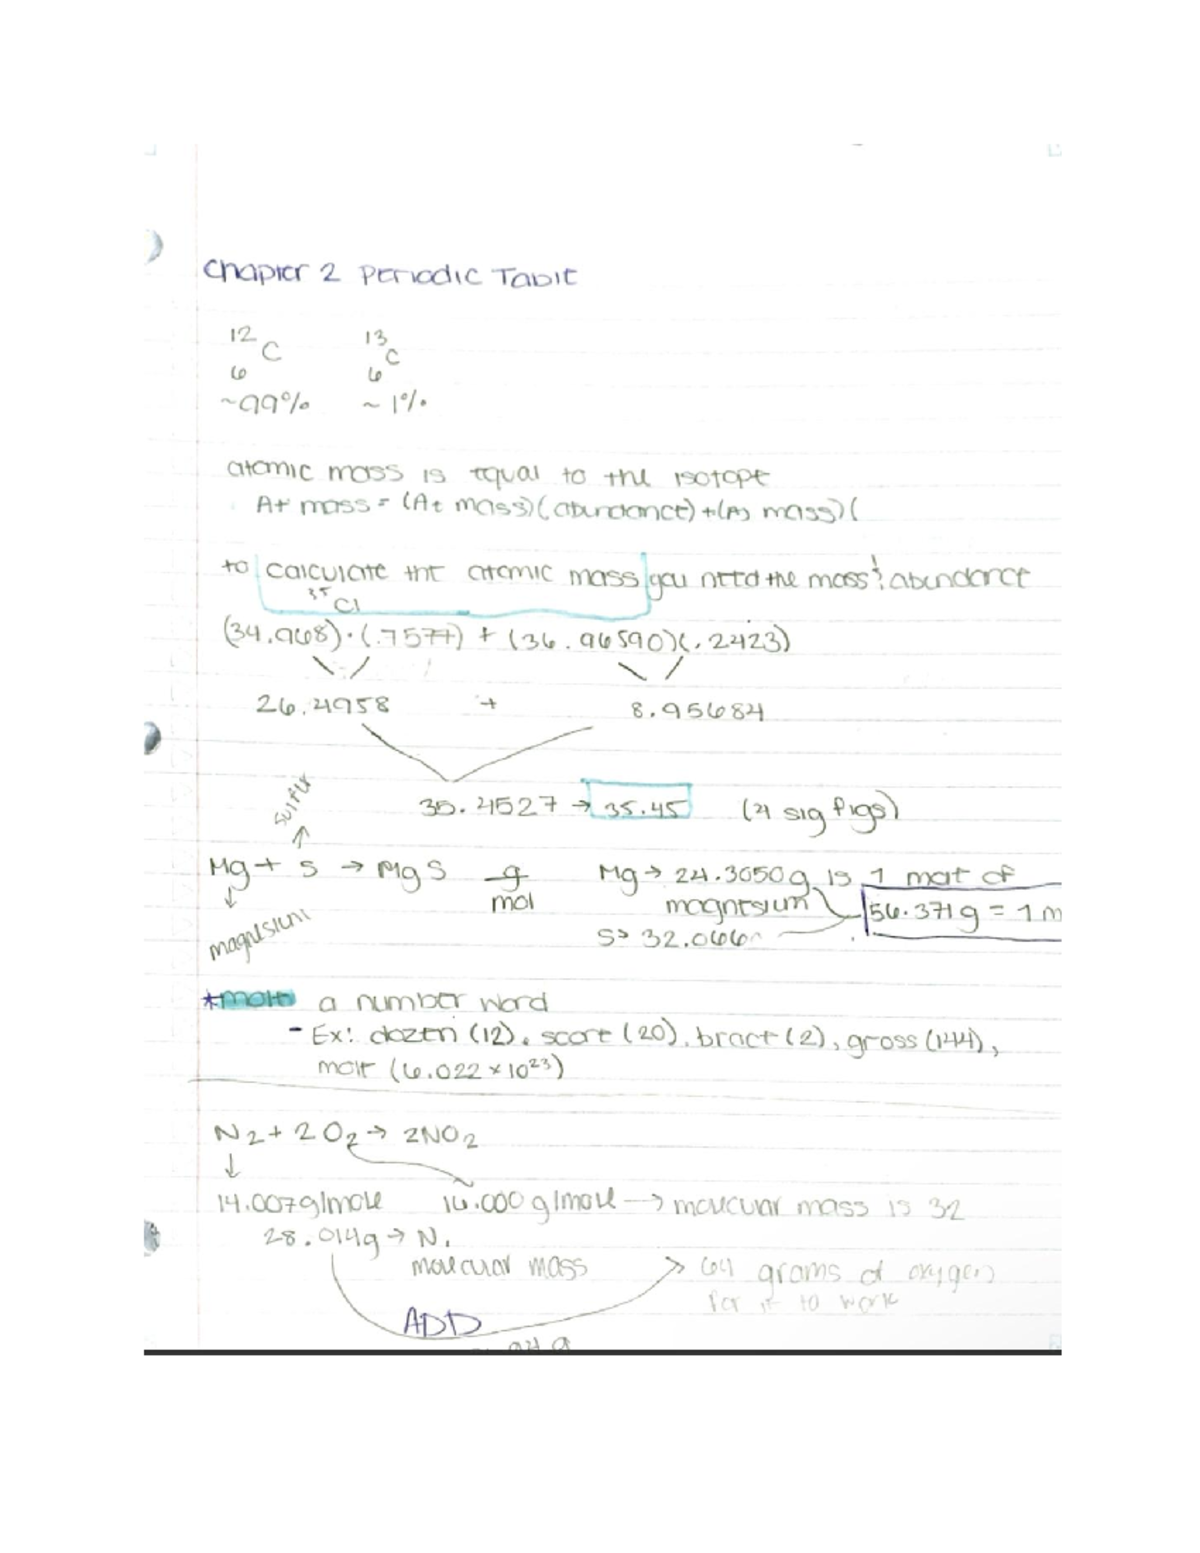 Chapter 2 Periodic Table
12 C 6 13 C 6
~99% ~1%
atomic mass is equal to the isotope
At mass = (At mass)(abundance) + (At mass)(
to calculate the atomic mass you need the mass & abundance
35 Cl
(34.968)·(.7577) + (36.96590)(.2423)
26.4958 + 8.95684
35.4527 → 35.45 (4 sig figs)
sulfur
Mg + S → MgS g/mol Mg → 24.3050g is 1 mol of
magnesium 56.371g = 1 m
S → 32.066
magnesium
*mole a number word
- Ex: dozen (12), score (20), brace (2), gross (144),
mole (6.022 × 10²³)
N₂ + 2O₂ → 2NO₂
↓
14.007g/mole 16.000 g/mole → molecular mass is 32
28.014g → N
molecular mass > 64 grams of oxygen
for it to work
ADD